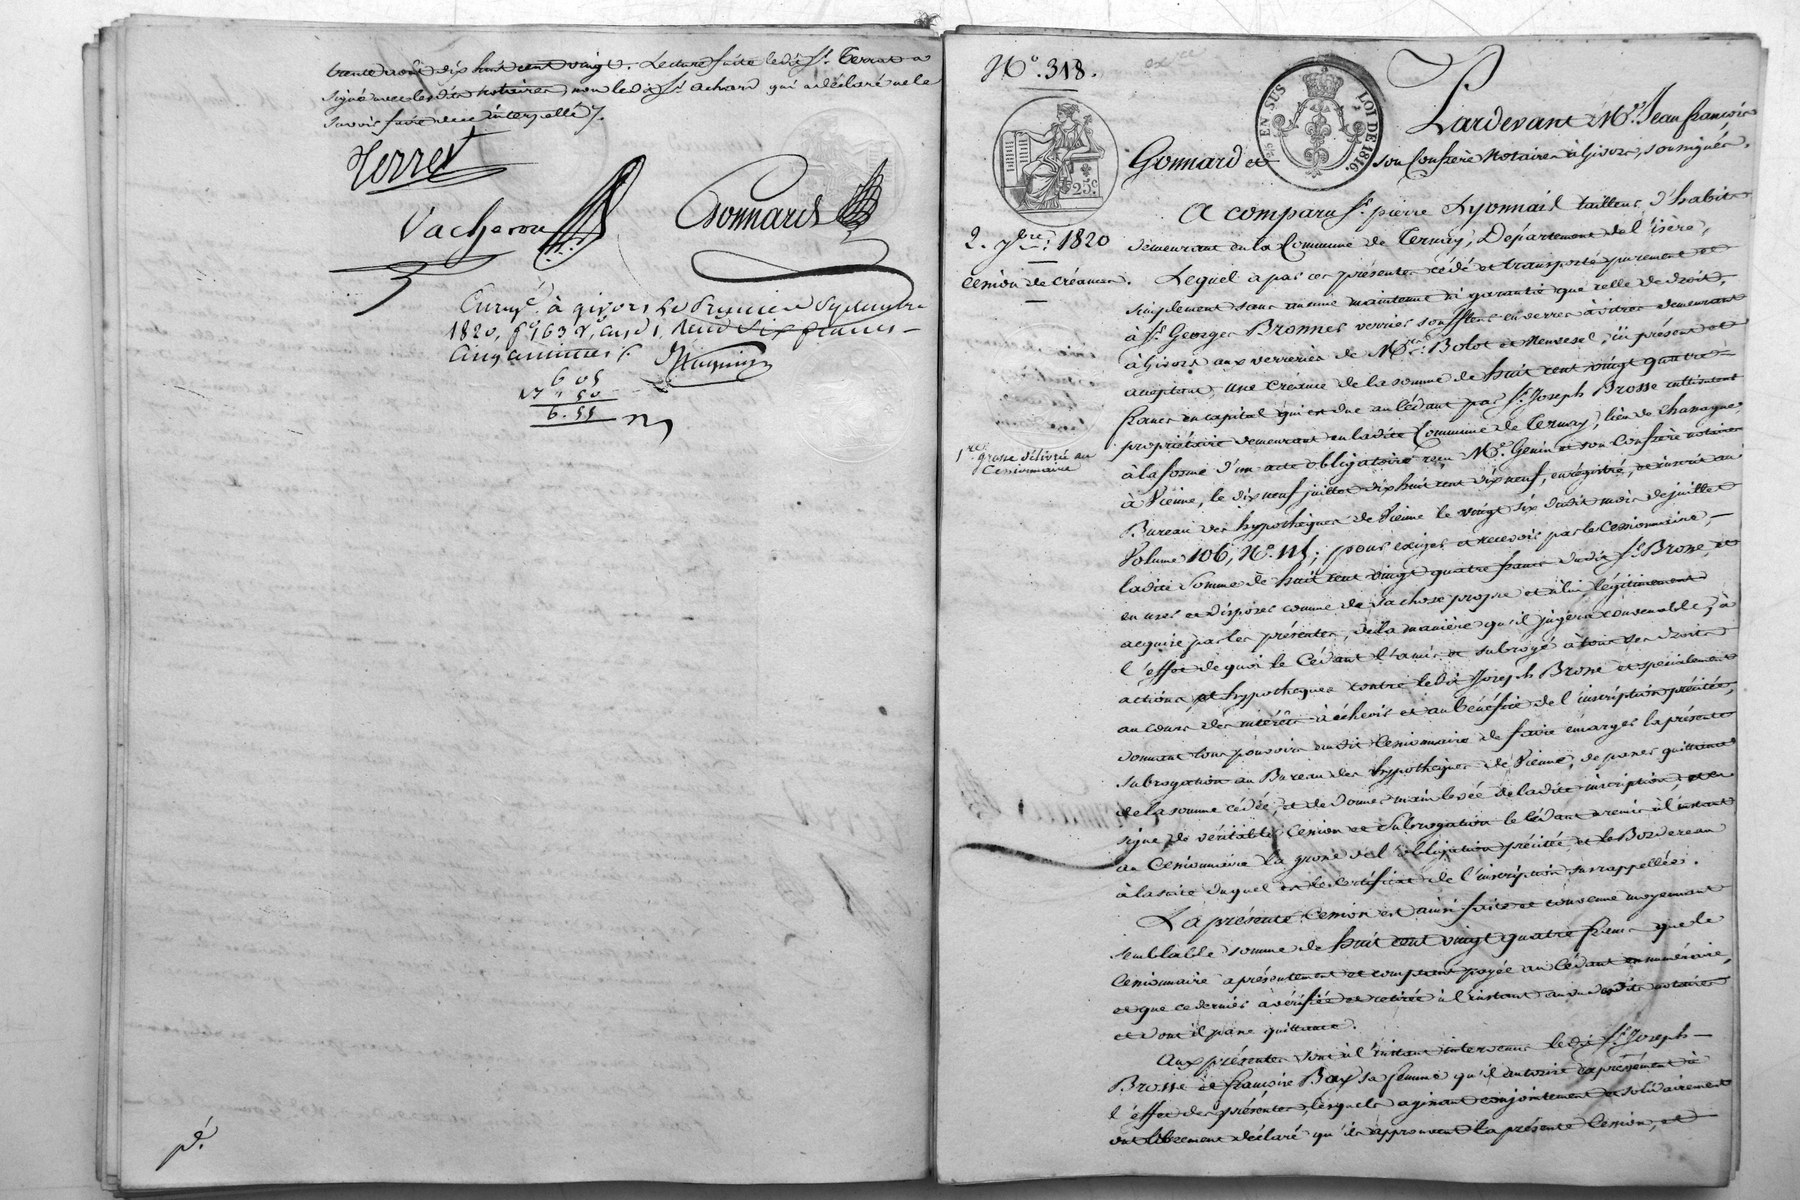 trente août dix huit cent vingt. Lecture faite ledit Sr. Terret a
signé avec lesdits notaires, non ledit Sr. Achard qui a déclaré ne le
savoir faire de ce interpellé
Terret
Vacheron
Gonnard
Enregé. à givors le Premier Septembre
1820, fo. 163 Vo. case 1, Reçu Six francs
Cinq centimes
6 05
50
6. 55
pd.
No. 318.
EN SUS
LOI DE 1816.
25c
Pardevant Me. Jean françois
Gonnard et son Confrère Notaires à Givors, soussignés.
2. 7bre. 1820
Cession de Créances.
A comparu Sr. pierre Lyonnail tailleur d'habits
demeurant en la Commune de Ternay, Département de l'isère,
Lequel a par ces présentes cédé et transporté purement et
simplement sans aucune maintenue ni garantie que celle de droit,
à Sr. Georges Bronner verrier souffleur en verres à vitres demeurant
à Givors aux verreries de Mrs. Bolot et Neuvesel, ici présent et
acceptant, une créance de la somme de huit cent vingt quatre
francs en capital qui est due au Cédant par Sr. Joseph Brosse cultivateur
propriétaire demeurant en ladite Commune de Ternay, lieu de Chassagne,
1re. grosse délivrée au
Cessionnaire
à la forme d'un acte obligatoire reçu Me. Genin et son Confrère notaires
à Vienne, le dix neuf juillet dix huit cent dix neuf, enregistré, et inscrit au
Bureau des hypothèques de Vienne le vingt six dudit mois de juillet
Volume 106, No. 115; pour exiger et recevoir par le Cessionnaire,
ladite Somme de huit cent vingt quatre francs dudit Sr. Brosse, et
en user et disposer comme de sa chose propre et à lui légitimement
acquise par les présentes, de la manière qu'il jugera convenable; à
l'effet de quoi le Cédant l'a mis et subrogé à tous ses droits
actions et hypothèques contre ledit Joseph Brosse et spécialement
au cours des intérêts à échoir et au bénéfice de l'inscription précitée,
donnant tous pouvoirs audit Cessionnaire de faire émarger la présente
subrogation au Bureau des hypothèques de Vienne, de passer quittance
de la somme cédée, et de donner mainlevée de ladite inscription, et en
signe de véritable Cession et Subrogation le Cédant a remis à l'instant
au Cessionnaire la grosse de l'obligation précitée et le Bordereau
à la suite duquel est le certificat de l'inscription surrappellée.
La présente Cession est ainsi faite et convenue moyennant
semblable somme de huit cent vingt quatre francs que le
Cessionnaire a présentement et comptant payée au Cédant en numéraire,
et que ce dernier a vérifiée et retirée à l'instant au vu desdits notaires
et dont il passe quittance.
Aux présentes sont à l'instant intervenus ledit Sr. Joseph
Brosse et françoise Bay sa femme qu'il autorise expressément à
l'effet des présentes, lesquels agissant conjointement et solidairement
ont librement déclaré qu'ils approuvent la présente Cession, et